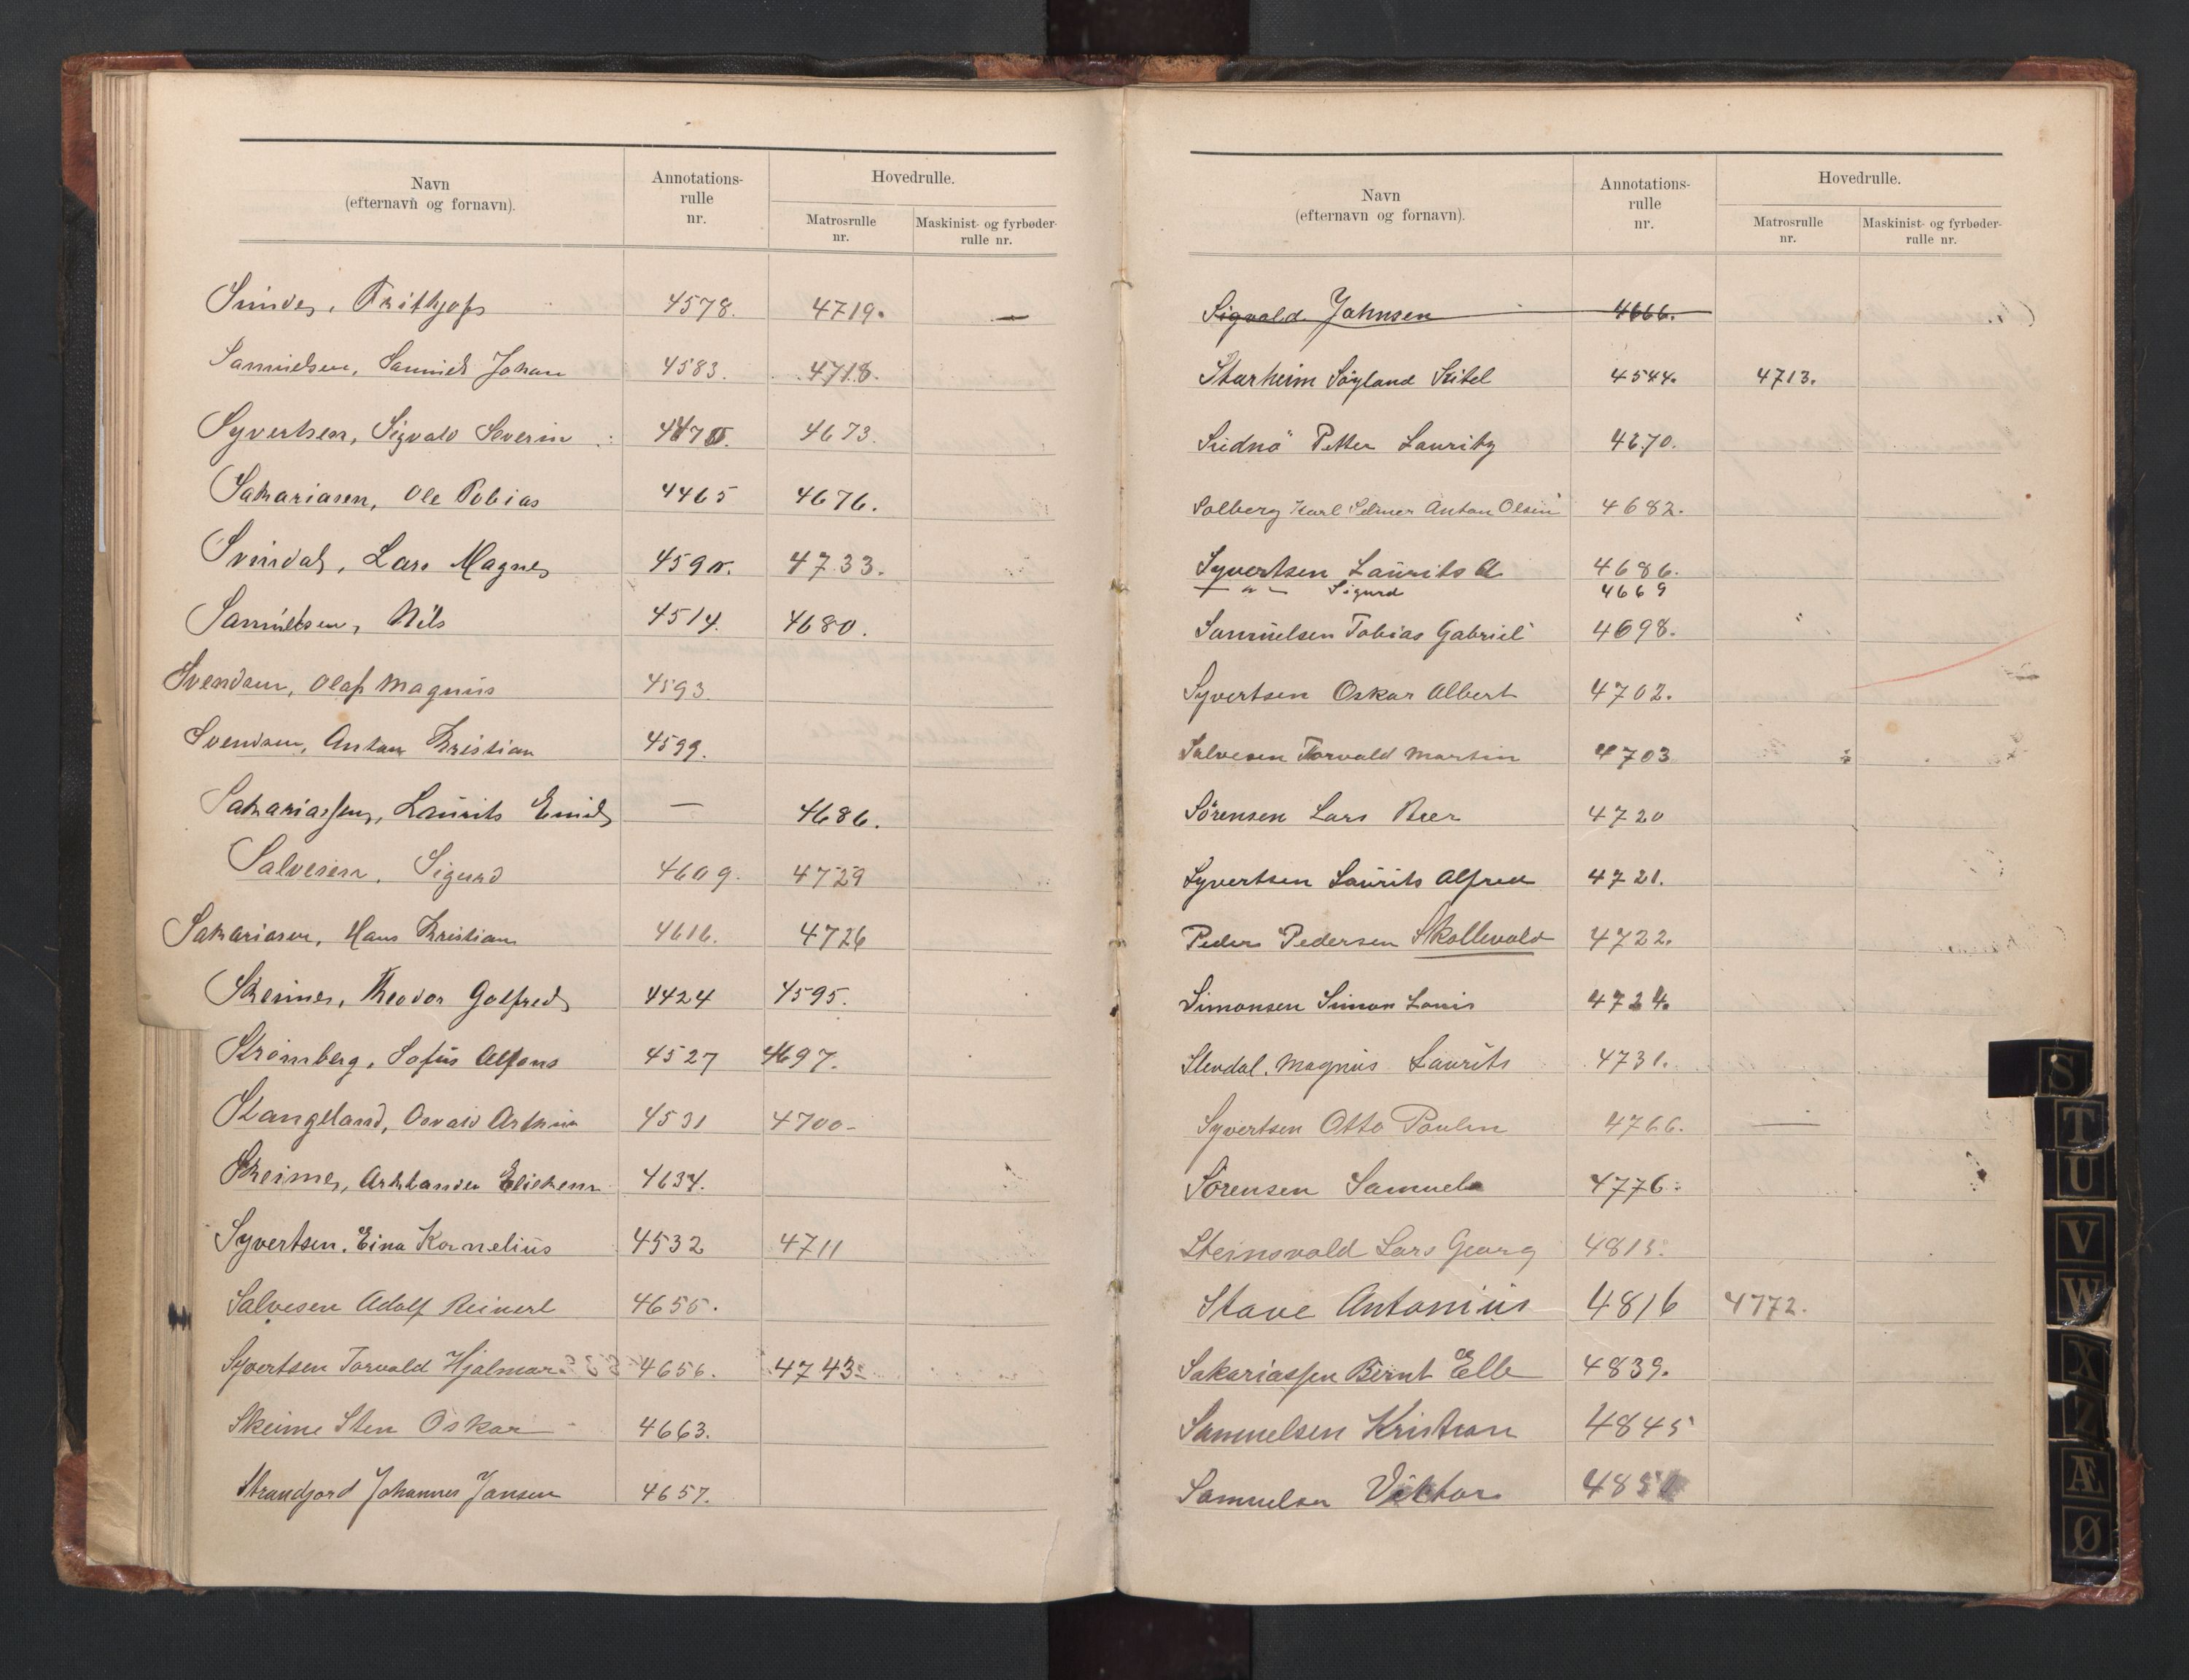 Navn
(efternavn og fornavn).
Annotations-
rulle
nr.
Hovedrulle.
Matrosrulle
nr.
Maskinist- og fyrbøder-
rulle nr.
Frithjof 4578. 4719. —
Samuelsen, Samuel Johan 4583. 4718.
Syvertsen, Sigvald Severin 4673.
Sakariasen, Ole Tobias 4465 4676.
Svindal, Lars Magnus 4733.
Samuelsen, Nils 4514. 4680.
Svendsen, Olaf Magnus 4593.
Svendsen, Anton Kristian 4599.
Sakariassen, Laurits Emil — 4686.
Salvesen, Sigurd 4609. 4729
Sakariasen, Hans Kristian 4616. 4726
Skeime, Theodor Golfred 4424 4595.
Strömberg, Sofus Alfons 4527 4697.
Stangeland, Osvald Arthur 4531 4700-
Skeime, 4634.
Syvertsen, Einar Kornelius 4532 4711
Salvesen Adolf Reinert 4655.
Syvertsen Torvald Hjalmar 4656. 4743
Skeime Sten Oskar 4663.
Strandjord Johannes Jansen 4657.
Navn
(efternavn og fornavn).
Annotations-
rulle
nr.
Hovedrulle.
Matrosrulle
nr.
Maskinist- og fyrbøder-
rulle nr.
Sigvald Johnsen 4666.
Starheim Söyland 4544. 4713.
Petter Lauritz 4670.
Solberg Karl Selmer Anton Olsen 4682.
Syvertsen Laurits A 4686.
— " — Sigurd 4669
Samuelsen Tobias Gabriel 4698.
Syvertsen Oskar Albert 4702.
Salvesen Torvald Martin 4703
Sörensen Lars 4720
Syvertsen Laurits Alfred 4721.
Peder Pedersen Skollevold 4722.
Simonsen Simon Louis 4724.
Magnus Laurits 4731.
Syvertsen Otto Paulin 4766. —
Sörensen Samuel 4776.
Steinsvold Lars Georg 4815.
Stave Antonius 4816 4772.
Sakariassen Bernt 4839.
Samuelsen Kristian 4845
Samuelsen Viktor
S
T
U
V
W
X
Z
Æ
Ø